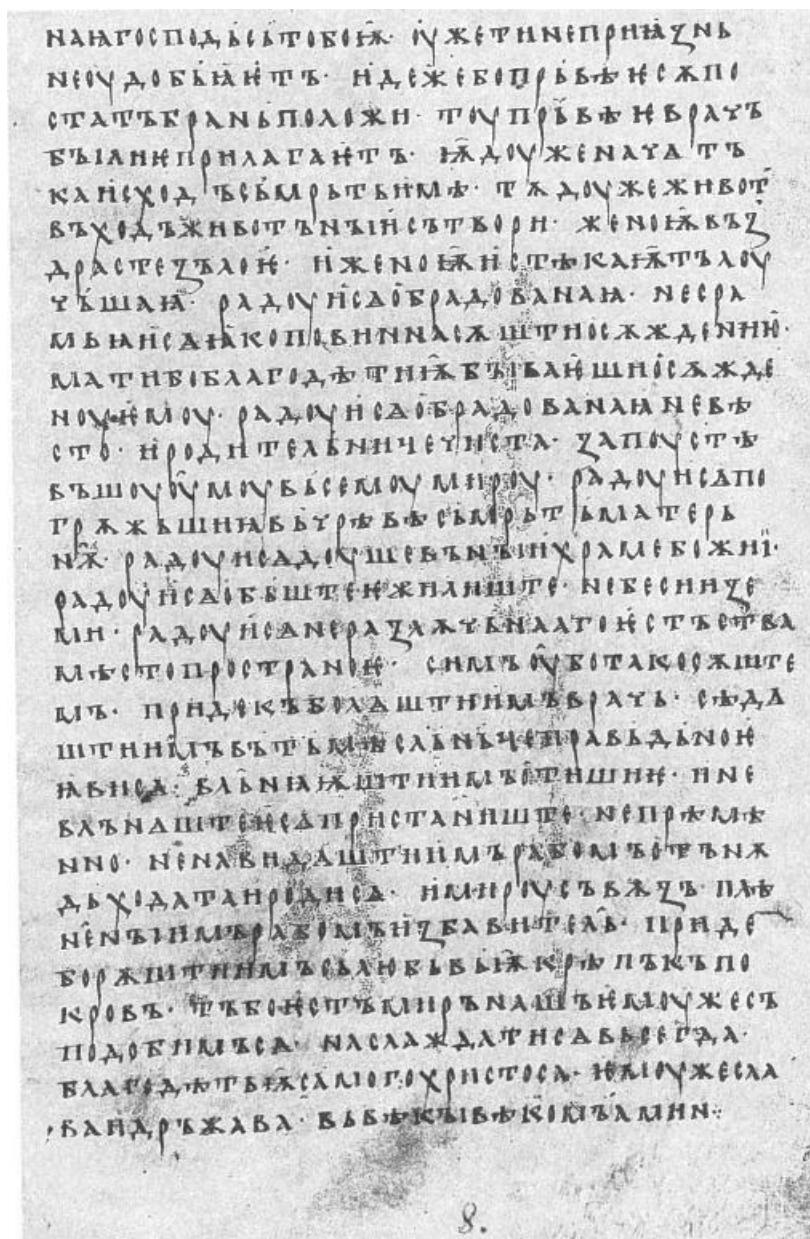 наꙗгосподьсътобоѭ· оужетинеприꙗзнь
неоудобьꙗѥтъ· идежебопрьвѣѥсѧпо
статъбраньположи· тоупрьвѣѥврачъ
бꙑлиѥприлагаѥтъ· ѭдоуженачѧтъ
каисходъсьмрьтьимѣ· тѫдоужеживот
въходъживотънꙑисътвори· женоѭвъз
драстезълоѥ· иженоѭистѣкаѭтълоу
чьшаꙗ· радоуисѧобрадованаꙗ· несра
мьꙗисѧꙗкоповиннасѫштиосѫждениѭ·
матибоблагодѣтиѭбꙑваѥшиосѫжде
ноуѥмоу· радоуисѧобрадованаꙗневѣ
сто· ꙇродительничечиста· запоустѣ
въшоуоумоувьсемоумироу· радоуисѧпо
грѫжьшиꙗвьчрѣвѣсьмрьтьматерь
нѭ· радоуисѧдоушевънꙑихрамебожиі·
радоуисѧобьштеѥжилиште· небесиизе
ми· радоуисѧнеразлѫчьнааго ѥстьства
мѣстопространоѥ· симъоуботакосѫште
мъ· придекъболѧштиимъврачь· сѣдѧ
штиимъвътьмѣсльньчеправьдьноѥ
ꙗвисѧ· вльнꙗѭштиимъотишиѥ· ине
влънѧштеѥсѧпристаниште· непрѣмѣ
нно· ненавидѧштиимърабомъотънѫ
дьходатаиродисѧ· имироусъвѫзъ· плѣ
ненꙑимърабомъизбавитель· приде
борѫштиимъсьлюбъвьѭкрѣпъкъпо
кровъ· тъбоѥстъмирънашъѥмоужесъ
подобимъсѧ· наслаждатисѧвьсегда·
благодѣтьѭсамогохристоса· ѥмоужесла
ваидръжава· въвѣкꙑвѣкомъаминъ
8.